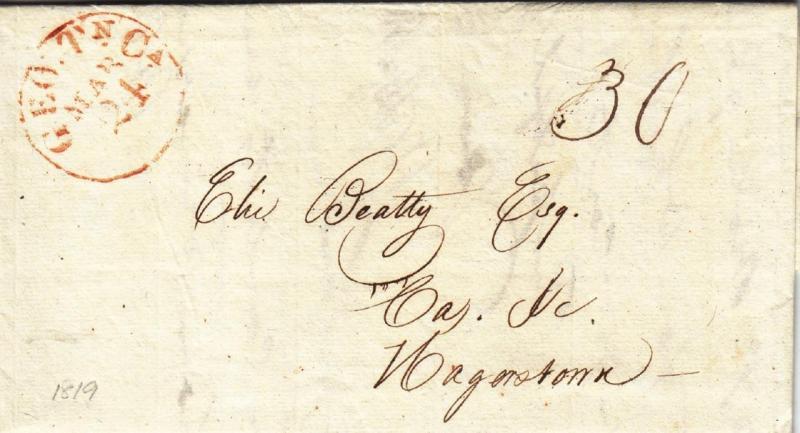 GEO.Tᴺ Cᴬ
MAR
24
30
Elie Beatty Esq.
Cas. &c.
Hagerstown
1819